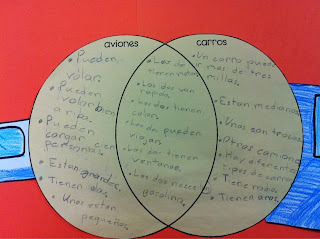 aviones
carros
• Pueden
volar.
• Pueden
volar bien
arriba.
• Pueden
cargar cien
personas.
• Estan grandes.
• Tienen alas.
• Unos estan
pequeños.
• Los dos
tienen
• Los dos van
• Los dos tienen
color.
• Los dos pueden
viajar.
• Los dos tienen
ventanas.
• Los dos
gasolina.
• Un carro puede
ir mas de tres
millas.
• Estan medianos
• Unos son trocas.
• Otros
• Hay diferentes
tipos de carros
• Tiene radio.
• Tienen aros.